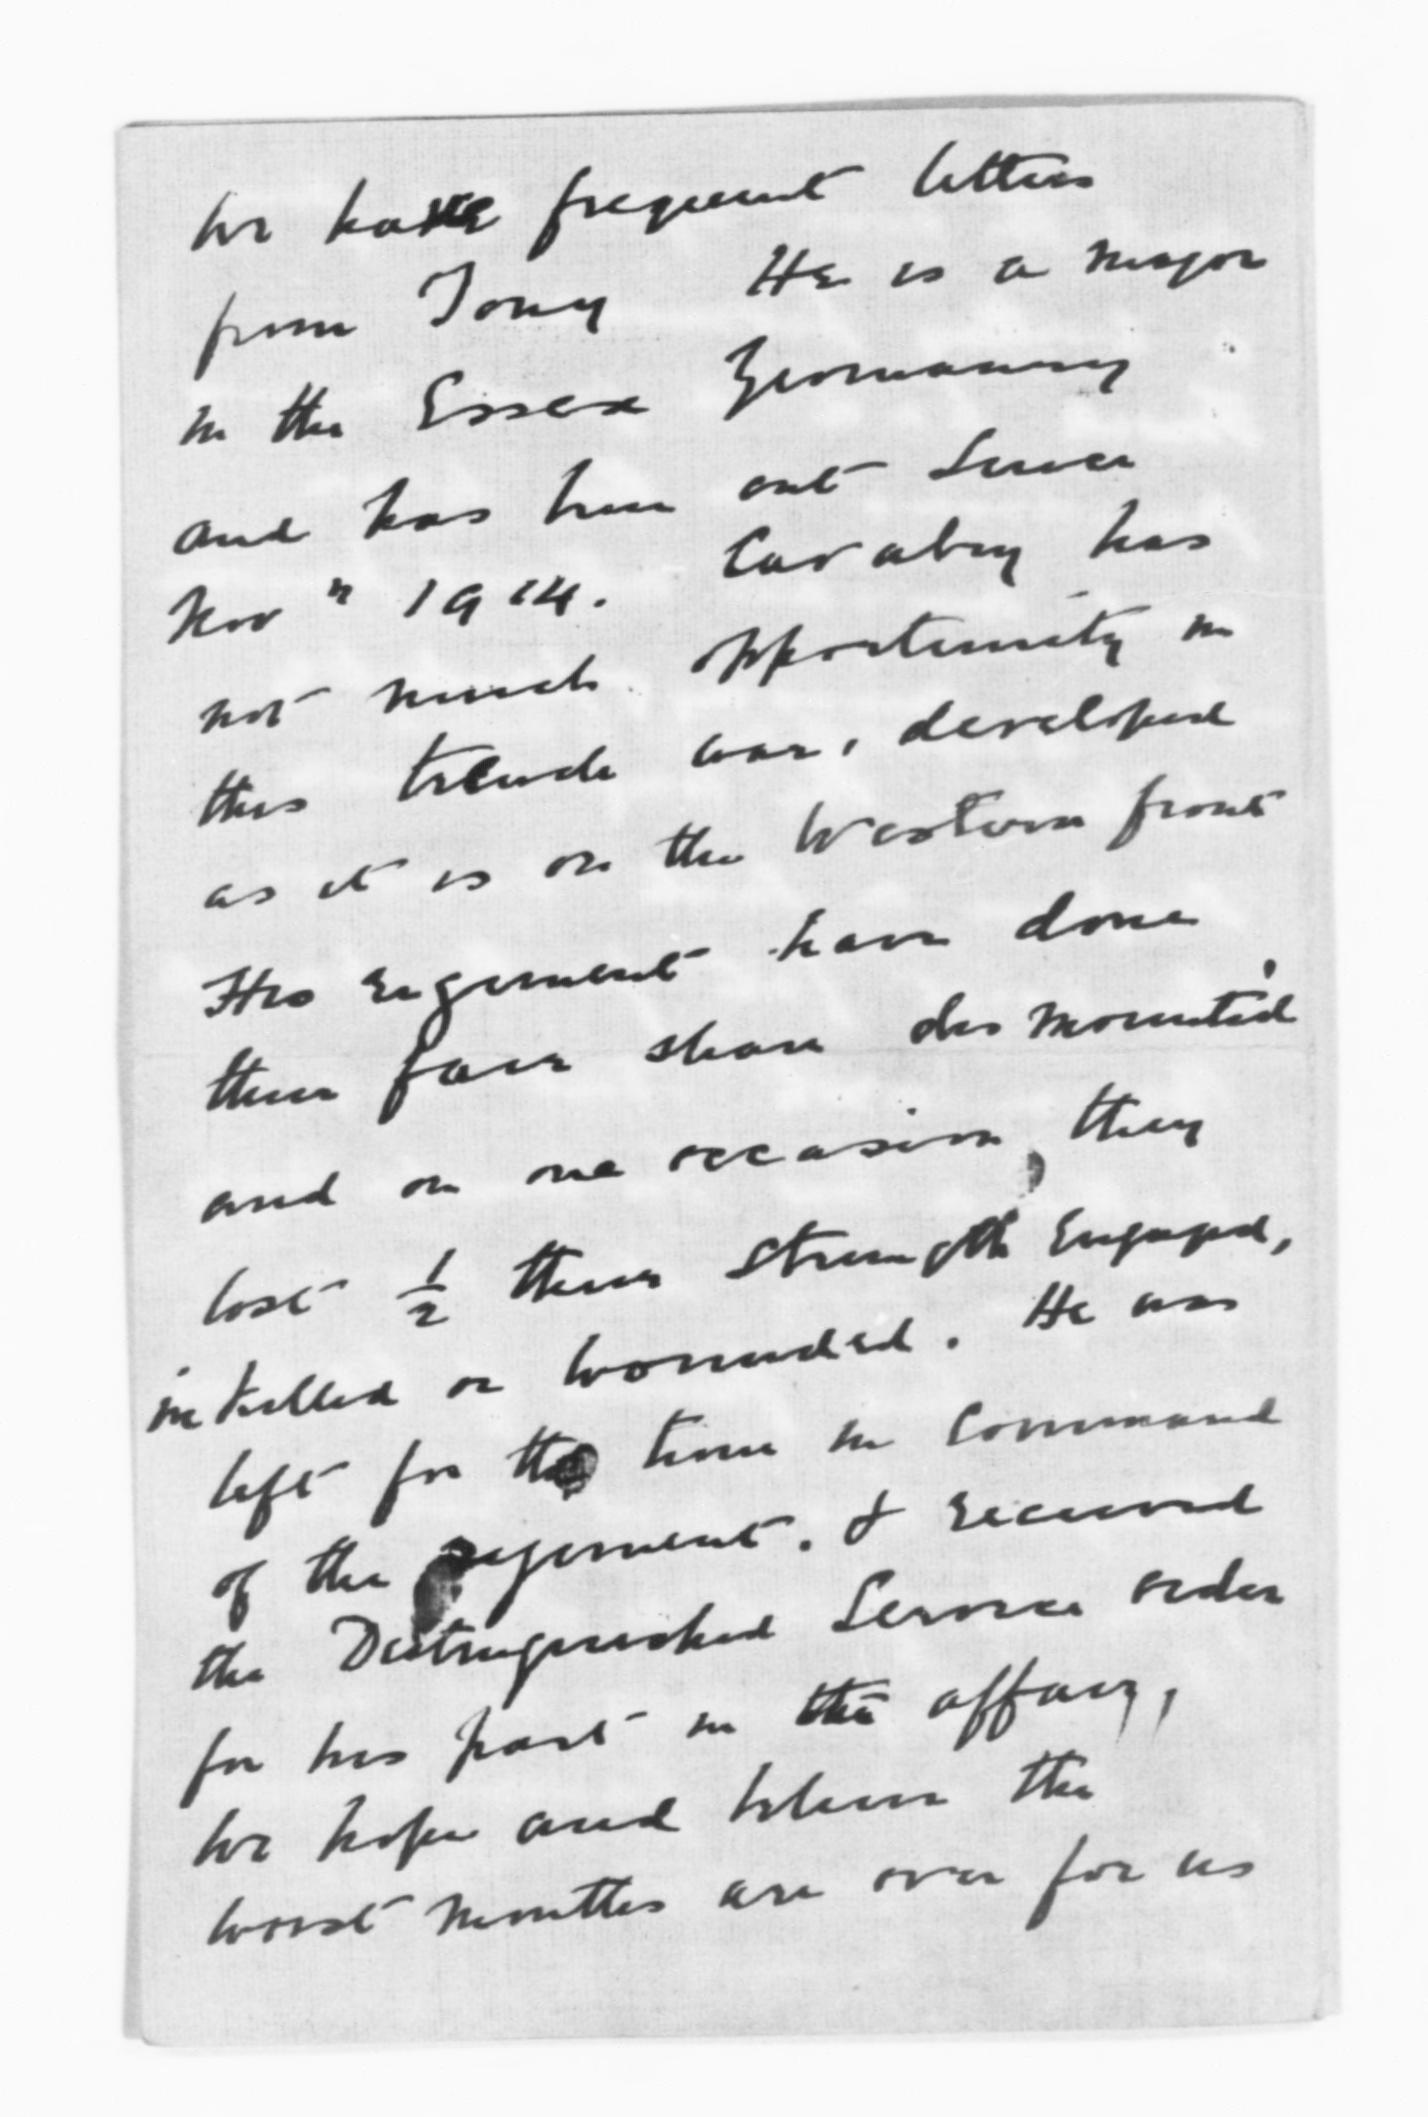 We have frequent letters
from Tony He is a major
in the Essex Yeomanry
and has been out since
Nov " 1914. Cavalry has
not much opportunity in
this trench war, developed
as it is on the Western front
His regiment have done
their fair share dismounted
and on one occasion they
lost 1/2 their strength engaged,
in killed or wounded. He was
left for the time in command
of the regiment. & received
the Distinguished Service order
for his part in the affair,
We hope and believe the
worst months are over for us